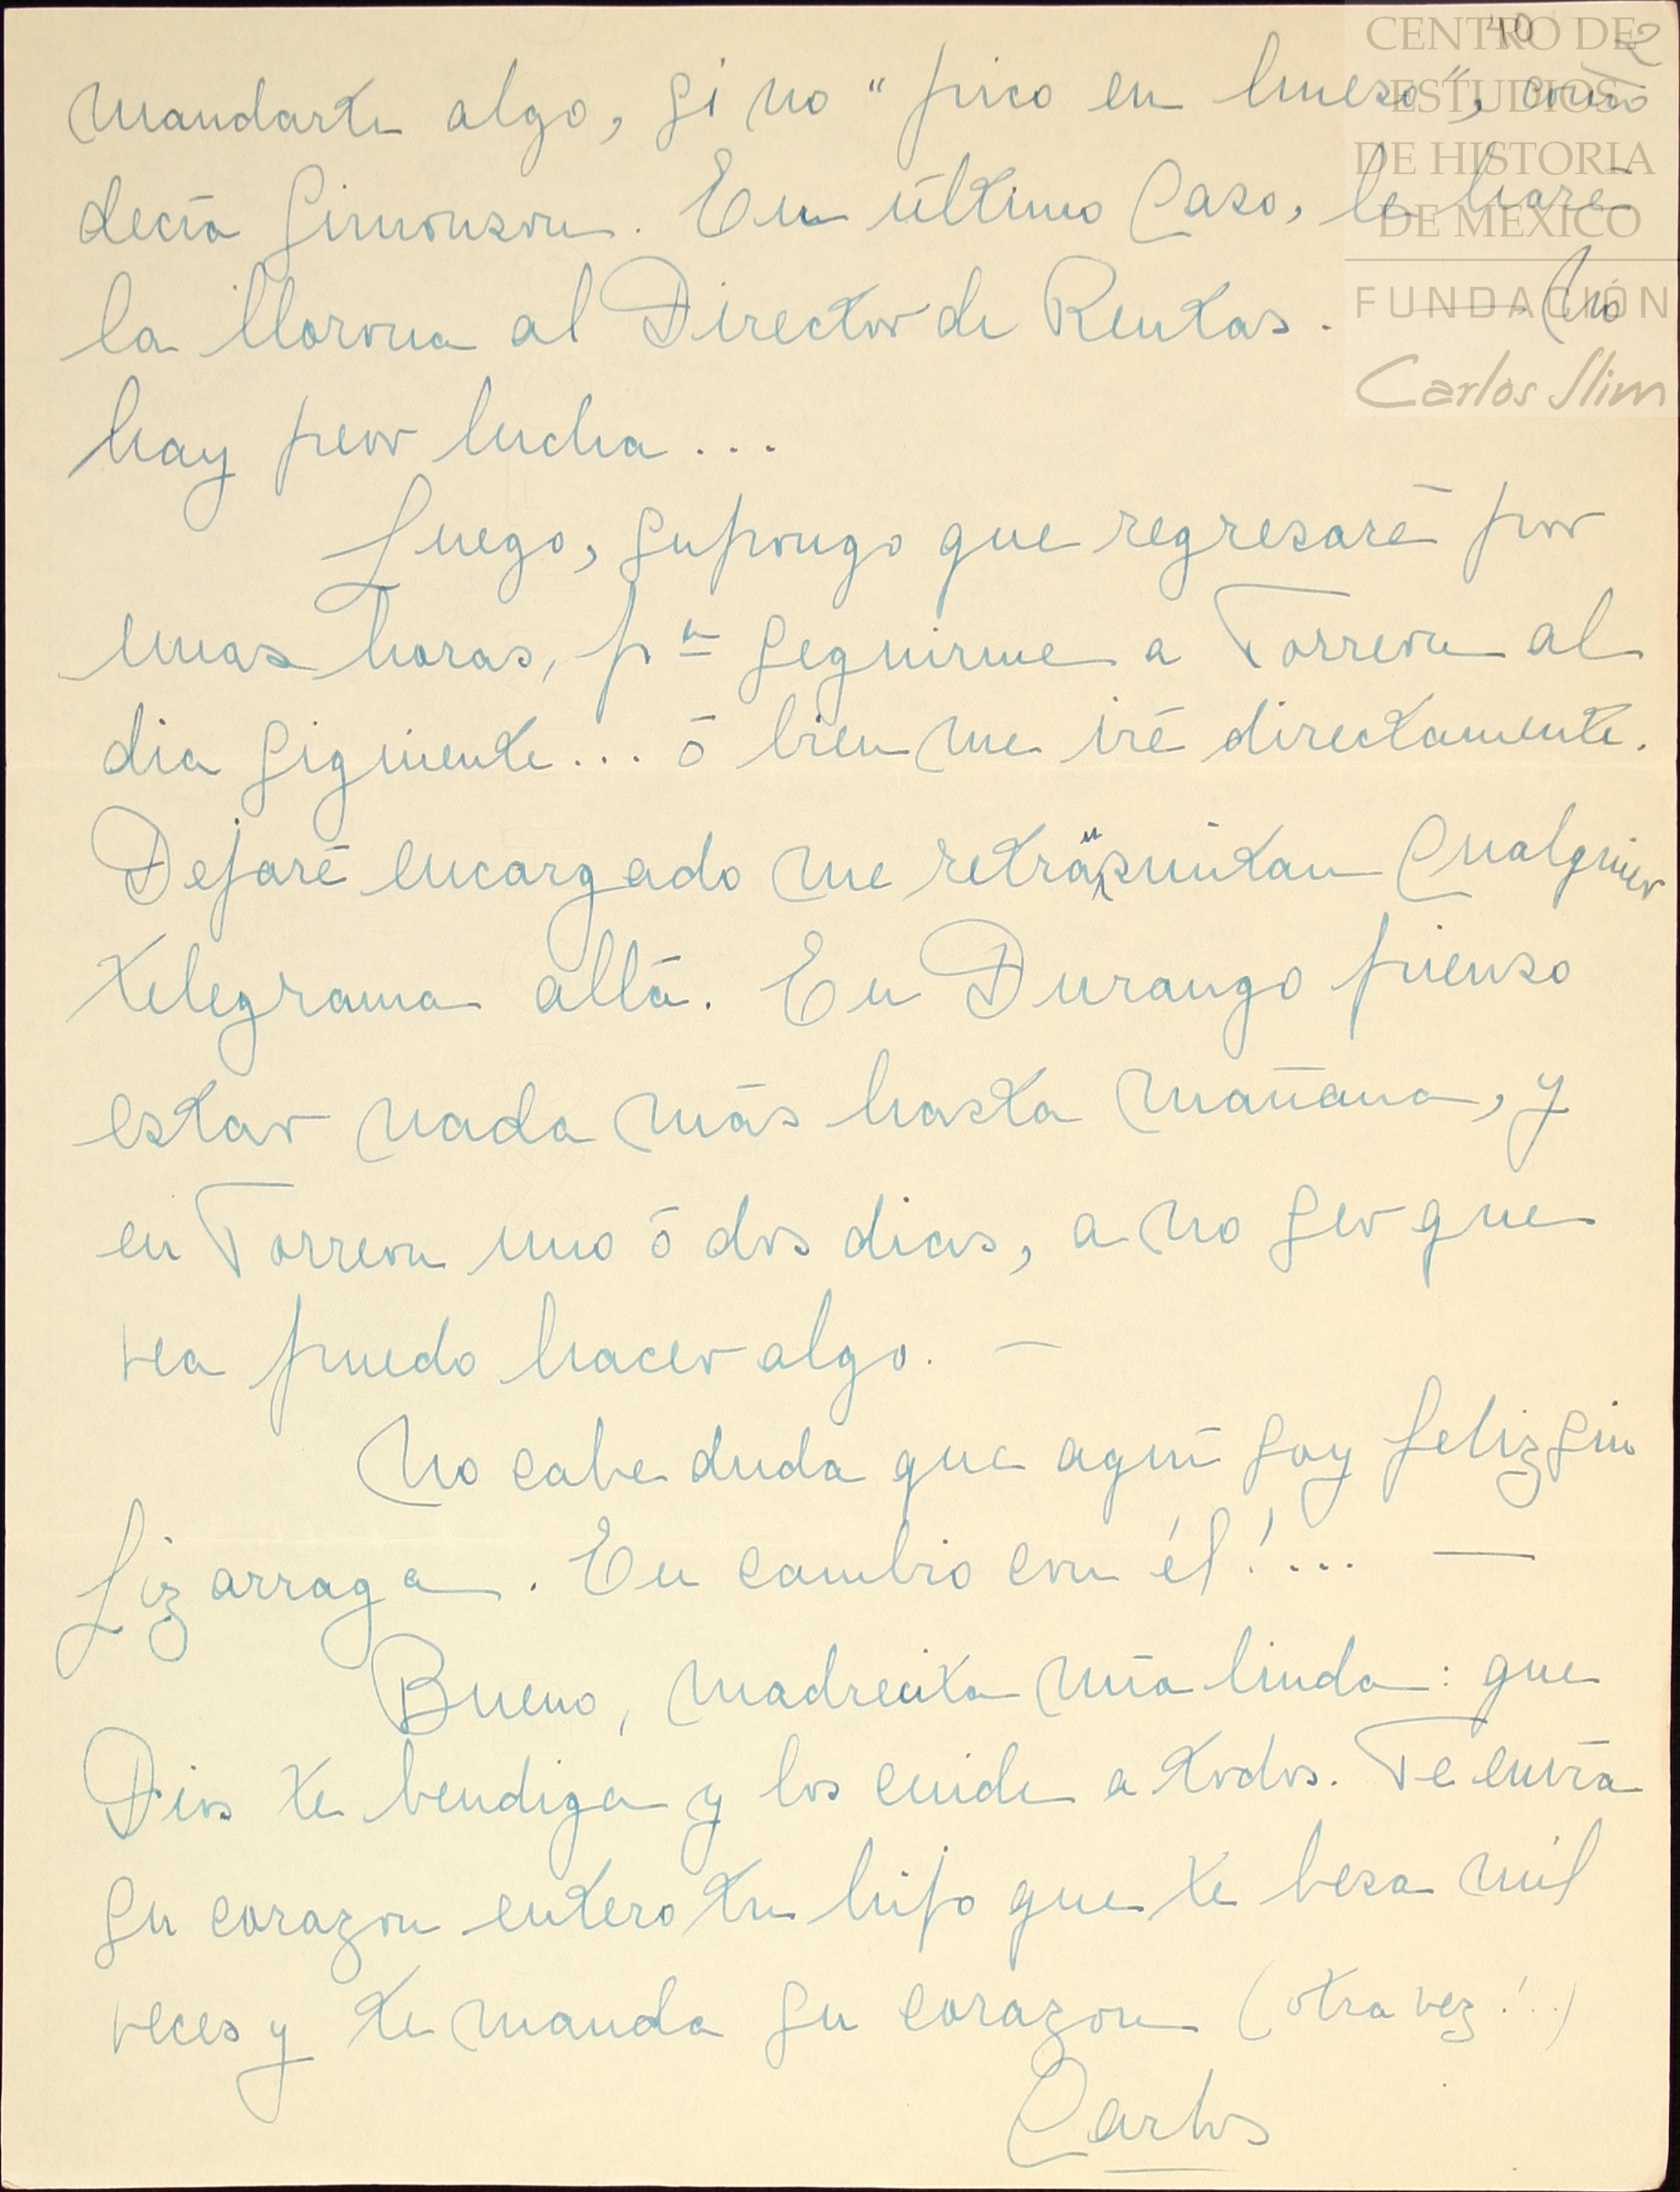 40 2
CENTRO DE
ESTUDIOS
DE HISTORIA
DE MEXICO
FUNDACIÓN
Carlos Slim
mandarte algo, si no "pico en hueso", como
decía Simonson. En último caso, le haré
la llorona al Director de Rentas. — No
hay peor lucha...
Luego, supongo que regresaré por
unas horas, pª seguirme a Torreon al
dia siguiente... ó bien me iré directamente.
Dejaré encargado me retrasmitan cualquier
telegrama allá. En Durango pienso
estar nada más hasta mañana, y
en Torreon uno ó dos dias, a no ser que
vea puedo hacer algo. —
No cabe duda que aquí soy feliz sin
Lizarraga. En cambio con él!... —
Bueno, madrecita mía linda: que
Dios te bendiga y los cuide a todos. Te envía
su corazon entero tu hijo que te besa mil
veces y te manda su corazon (otra vez!..)
Carlos